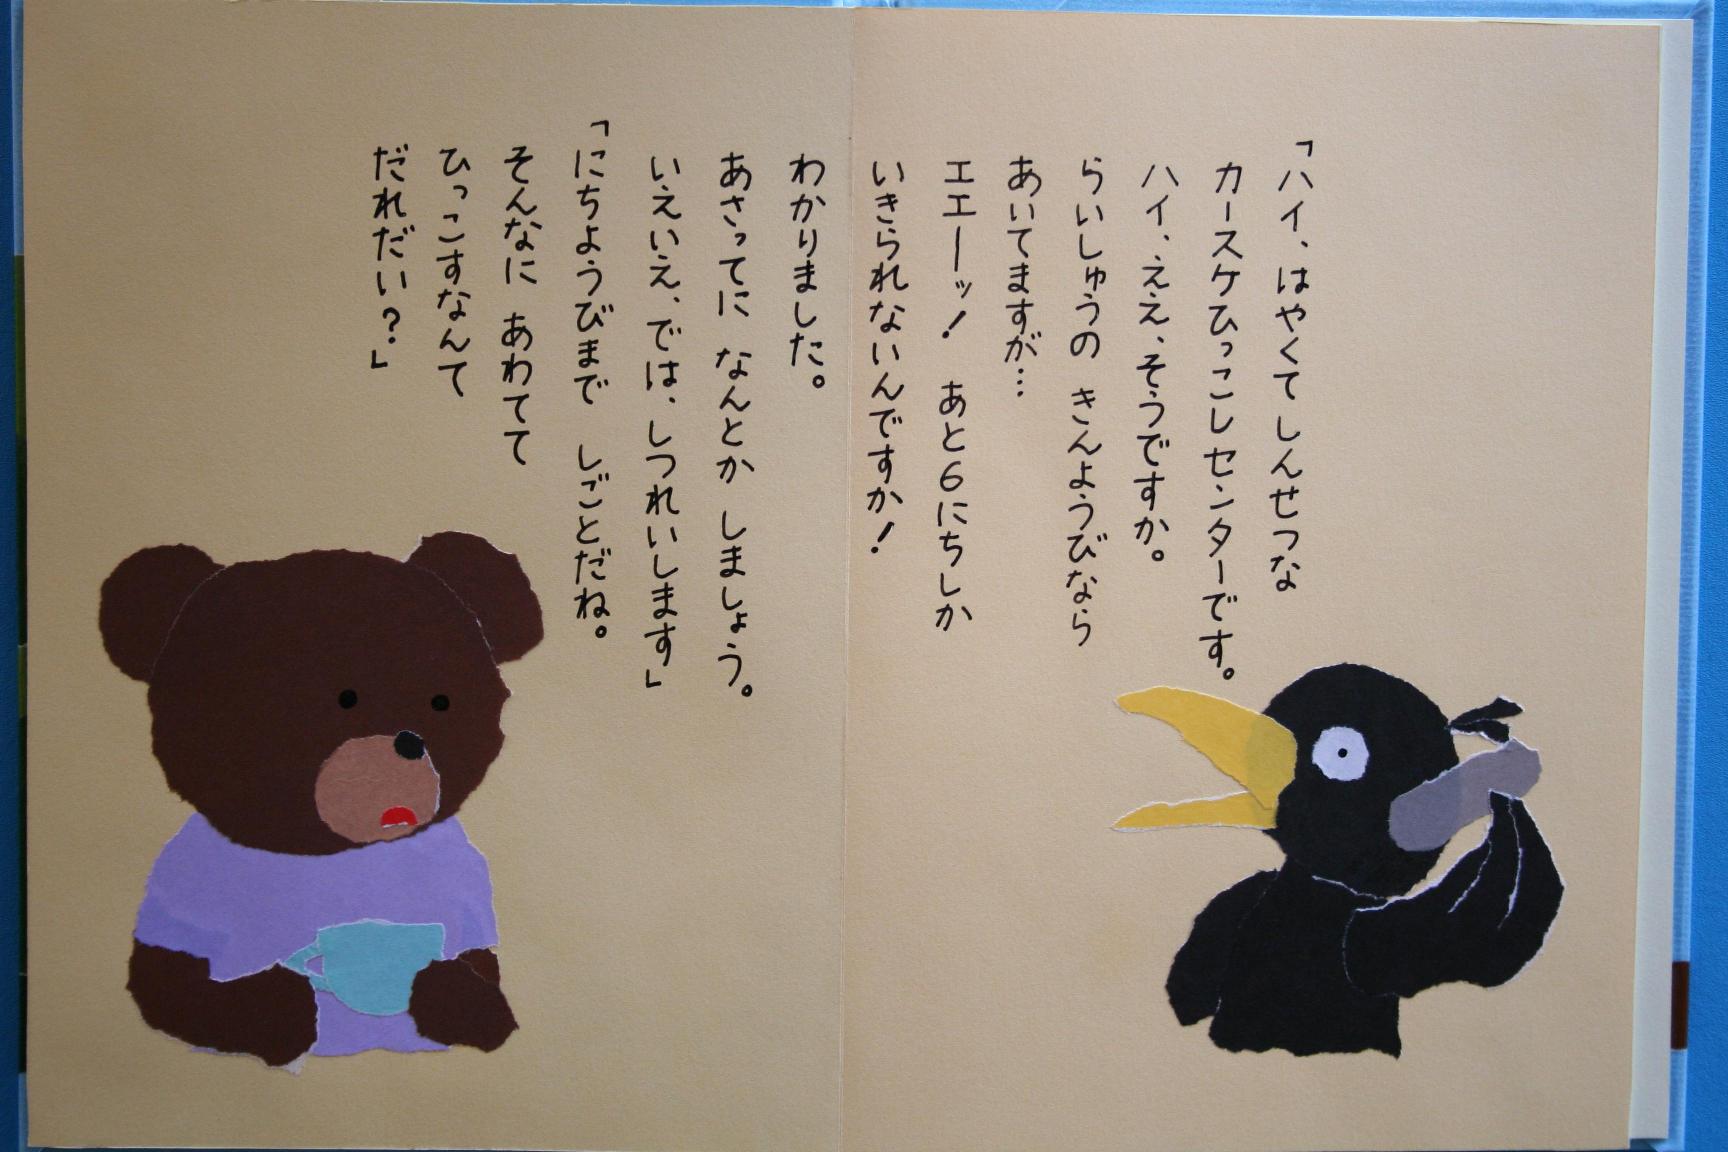 「ハイ、はやくてしんせつな
カースケひっこしセンターです。
ハイ、ええ、そうですか。
らいしゅうの きんようびなら
あいてますが…
エエーッ! あと6にちしか
いきられないんですか!
わかりました。
あさってに なんとか しましょう。
いえいえ、では、しつれいします」
「にちようびまで しごとだね。
そんなに あわてて
ひっこすなんて
だれだい?」